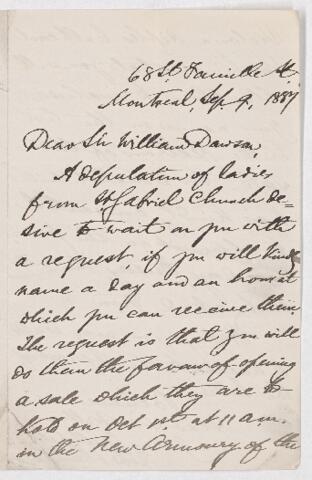 68 St. Famille St.
Montreal, Sep. 9, 1887
Dear Sir William Dawson,
A deputation of ladies
from St Gabriel Church de=
sire to wait on you with
a request, if you will kindly
name a day and an hour at
which you can receive them
The request is that you will
do them the favour of opening
a sale which they are to
hold on Oct 1st at 11 a.m.
in the New Armoury of the